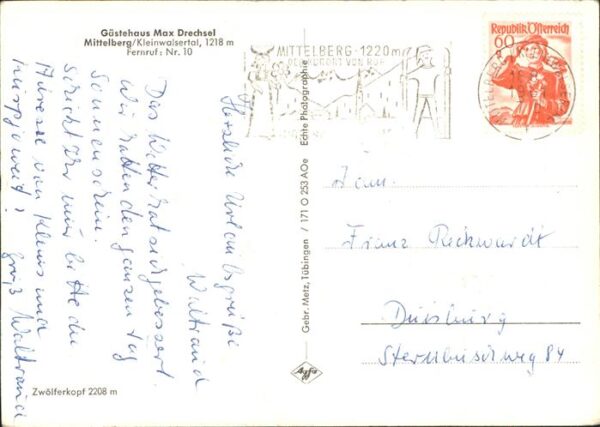 Gästehaus Max Drechsel
Mittelberg/Kleinwalsertal, 1218 m
Fernruf: Nr. 10
MITTELBERG · 1220 m
VON RUF
Republik Österreich
60
Herzliche Urlaubsgrüße
Waltraud
Das Wetter hat sich gebessert.
Wir hatten den ganzen Tag
Sonnenschein.
schickt Ihr mir bitte die
Adresse von Kleins und
Gruß Waltraud
Fam.
Franz Reckwardt
Duisburg
Sternbuschweg 84
Echte Photographie
Gebr. Metz, Tübingen / 171 O 253 AOe
Agfa
Zwölferkopf 2208 m